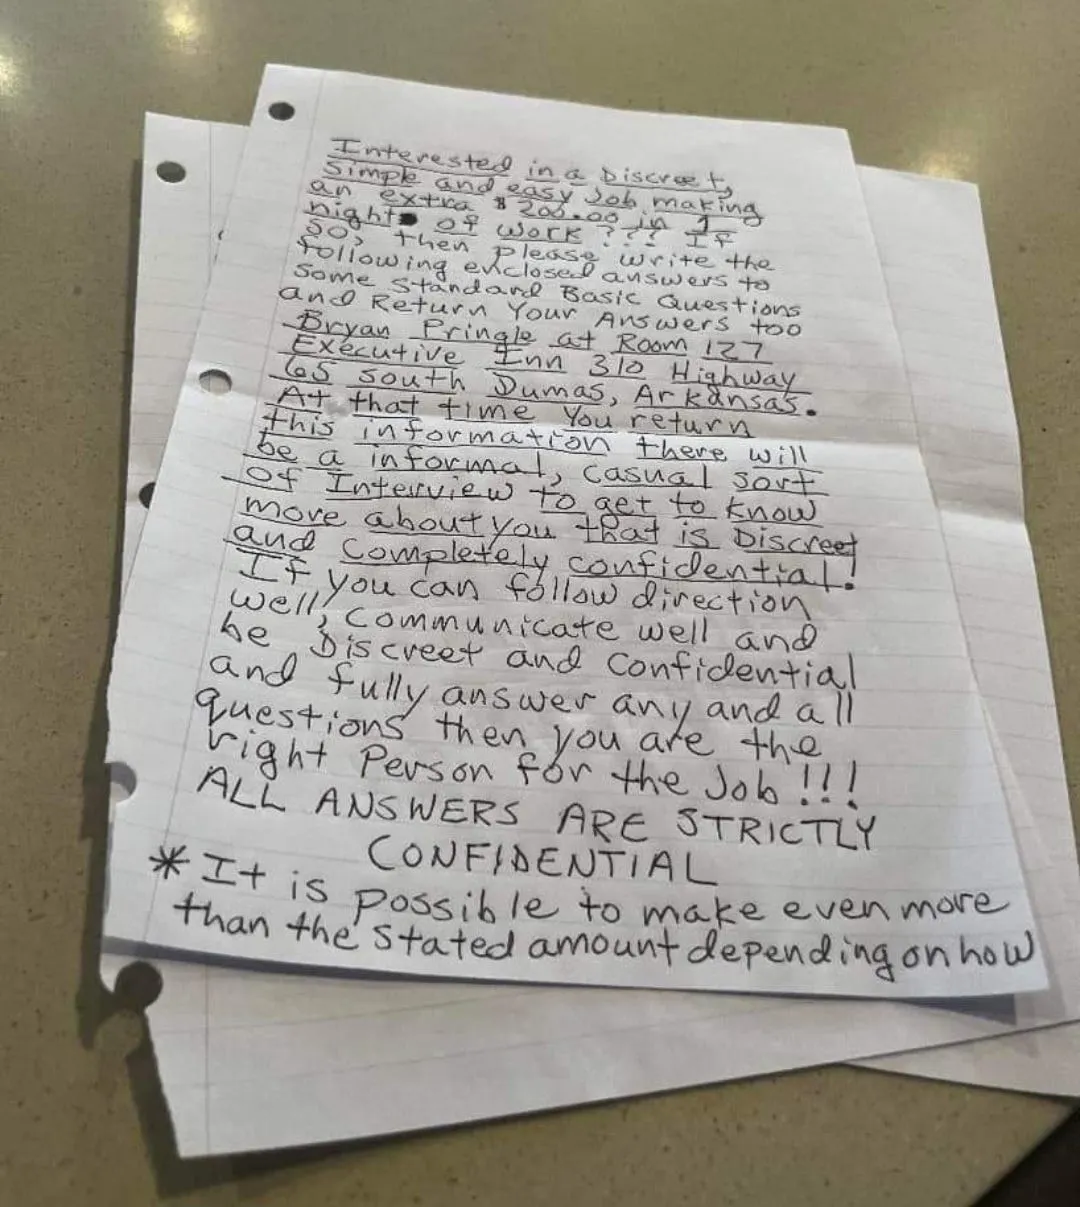 Interested in a Discreet,
Simple and easy Job making
an extra $200.00 in 1
night of work??? If
So, then Please write the
following enclosed answers to
Some Standard Basic Questions
and Return Your Answers too
Bryan Pringle at Room 127
Executive Inn 310 Highway
65 South Dumas, Arkansas.
At that time You return
this information there will
be a informal, casual sort
of Interview to get to know
more about you that is Discreet
and completely confidential!
If you can follow direction
well, communicate well and
be Discreet and Confidential
and fully answer any and all
questions then you are the
right Person for the Job!!!
ALL ANSWERS ARE STRICTLY
CONFIDENTIAL
*It is possible to make even more
than the stated amount depending on how